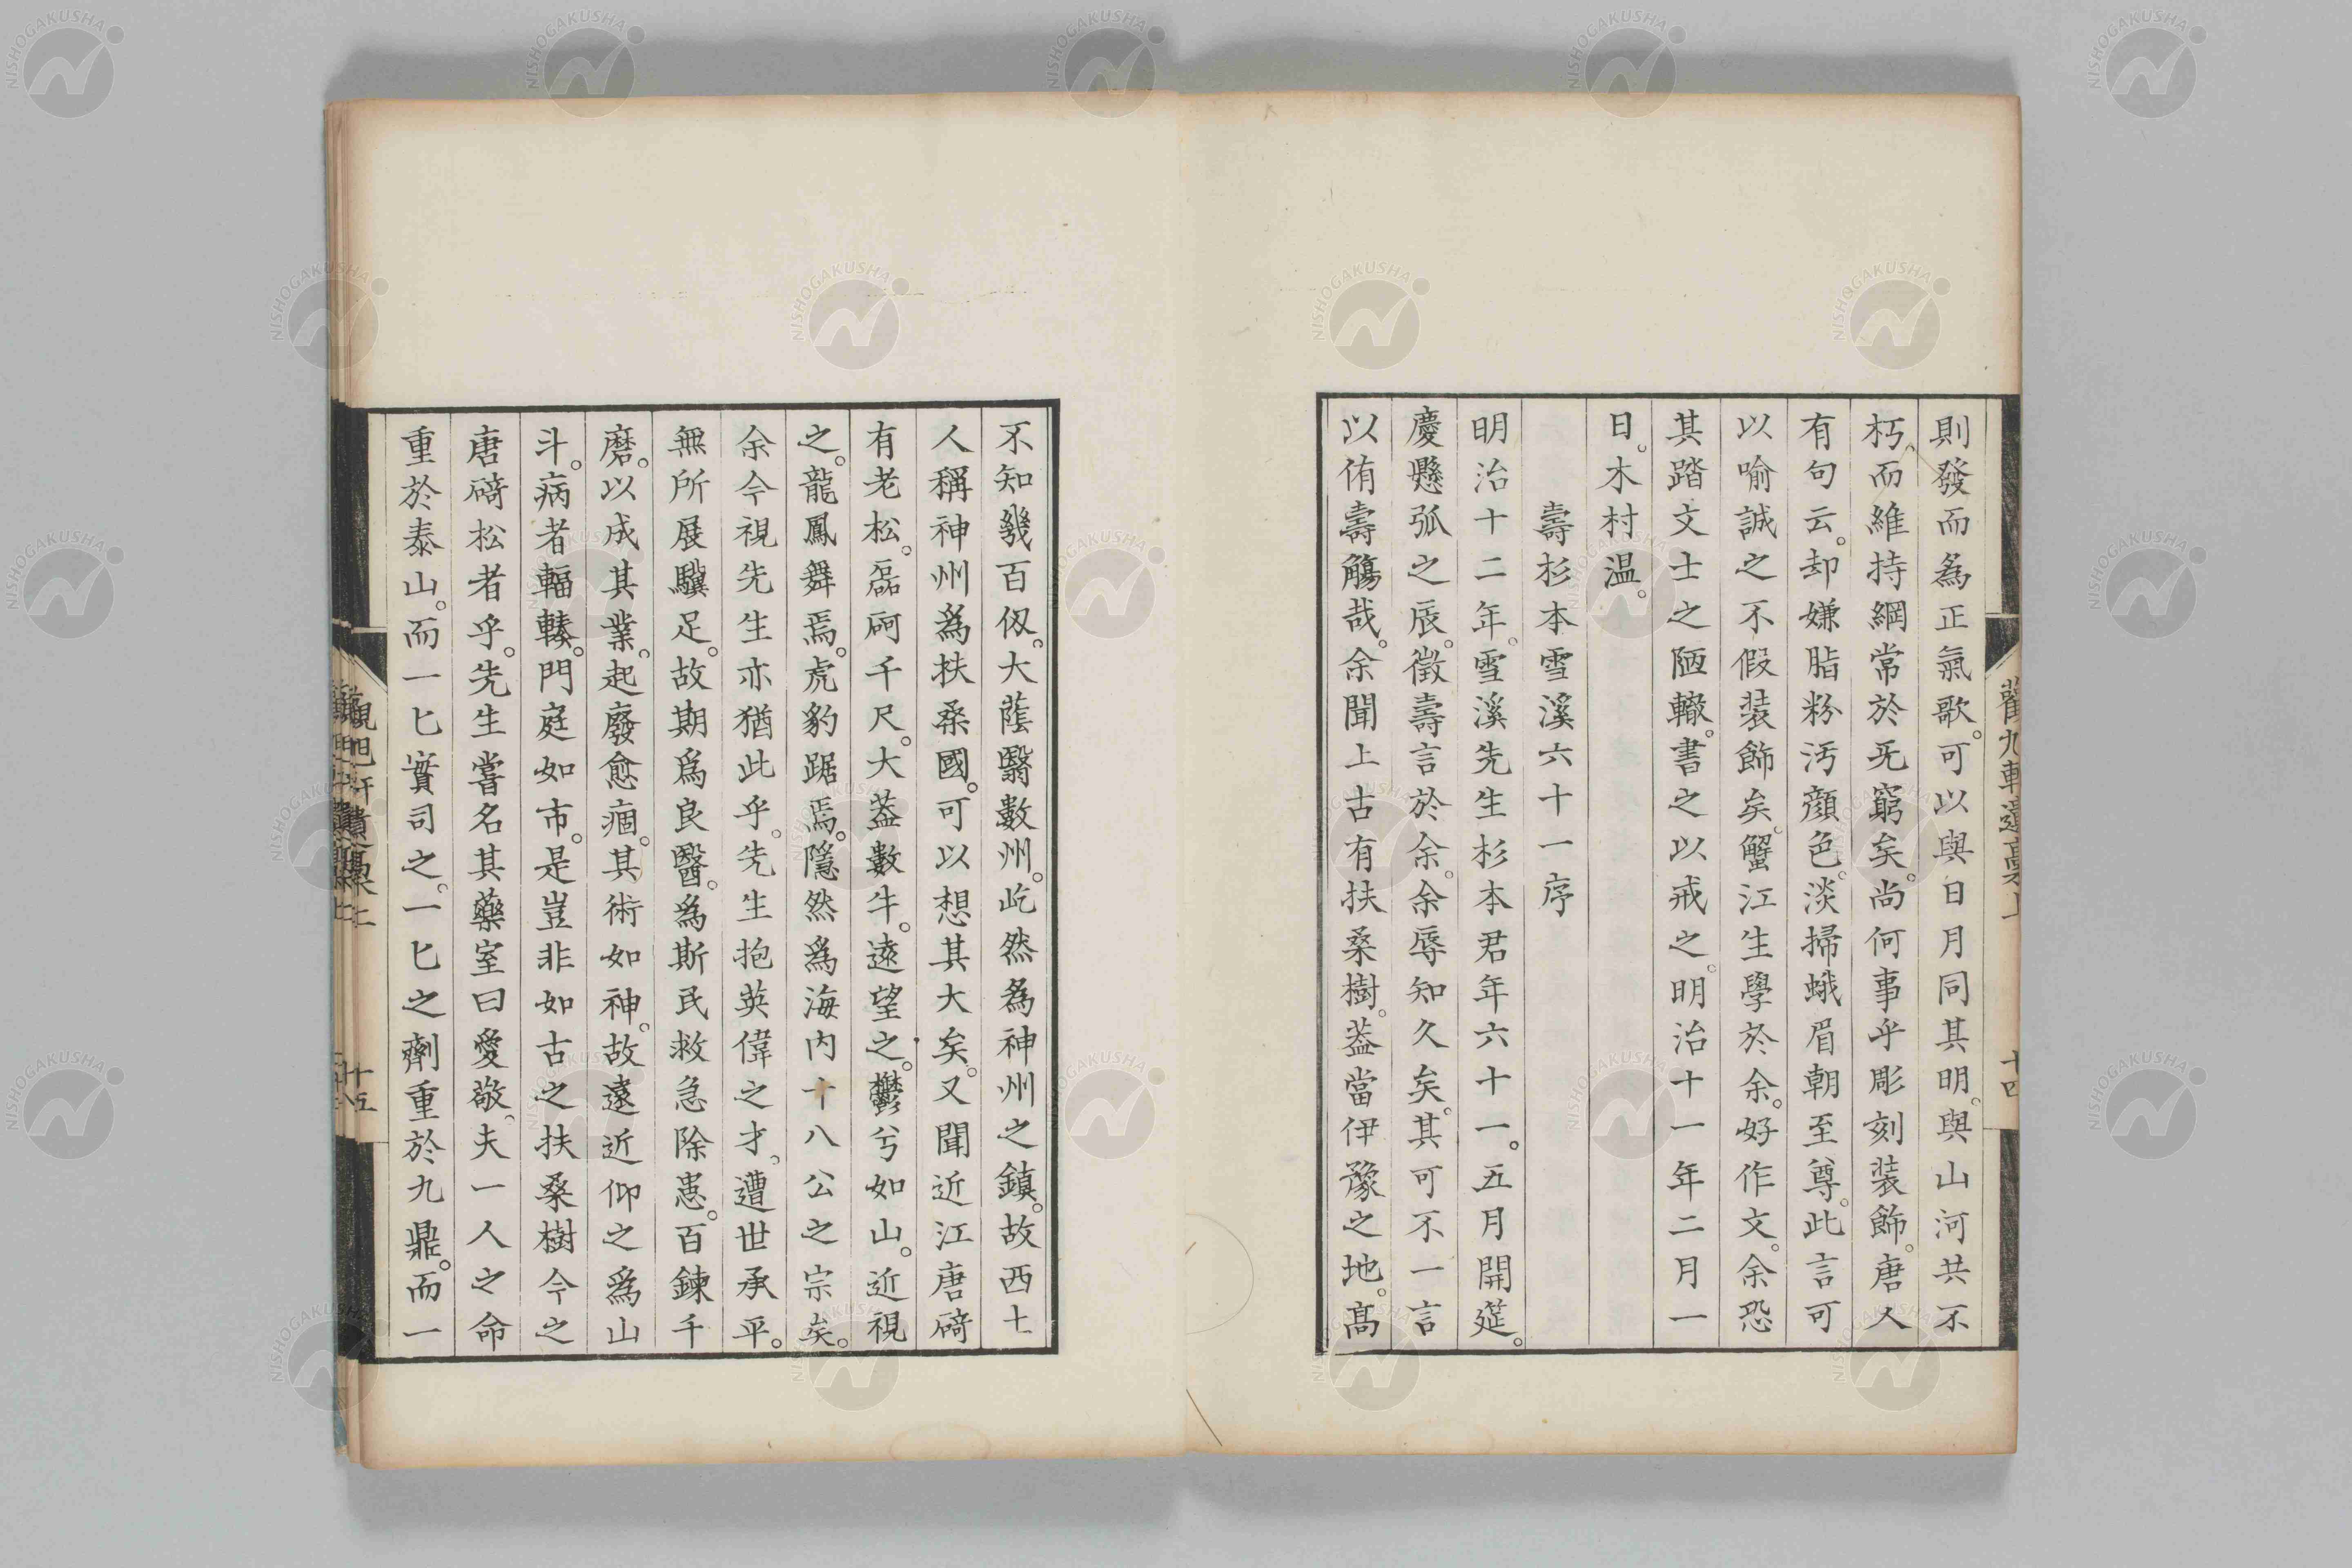 則發而爲正氣歌。可以與日月同其明。與山河共不
朽。而維持綱常於无窮矣。尚何事乎彫刻裝飾。唐人
有句云。却嫌脂粉汚顏色。淡掃蛾眉朝至尊。此言可
以喻誠之不假裝飾矣。蟹江生學於余。好作文。余恐
其踏文士之陋轍。書之以戒之。明治十一年二月一
日。木村温。
壽杉本雪溪六十一序
明治十二年。雪溪先生杉本君年六十一。五月開筵。
慶懸弧之辰。徵壽言於余。余辱知久矣。其可不一言
以侑壽觴哉。余聞上古有扶桑樹。蓋當伊豫之地。高
不知幾百仭。大蔭翳數州。屹然爲神州之鎮。故西土
人稱神州爲扶桑國。可以想其大矣。又聞近江唐碕
有老松。磊砢千尺。大蓋數牛。遠望之。鬱兮如山。近視
之。龍鳳舞焉。虎豹踞焉。隱然爲海内十八公之宗矣。
余今視先生亦猶此乎。先生抱英偉之才。遭世承平。
無所展驥足。故期爲良醫。爲斯民救急除患。百鍊千
磨。以成其業。起廢愈痼。其術如神。故遠近仰之爲山
斗。病者輻輳。門庭如市。是豈非如古之扶桑樹今之
唐碕松者乎。先生嘗名其藥室曰愛敬。夫一人之命
重於泰山。而一匕實司之。一匕之劑重於九鼎。而一
十五
NISHOGAKUSHA